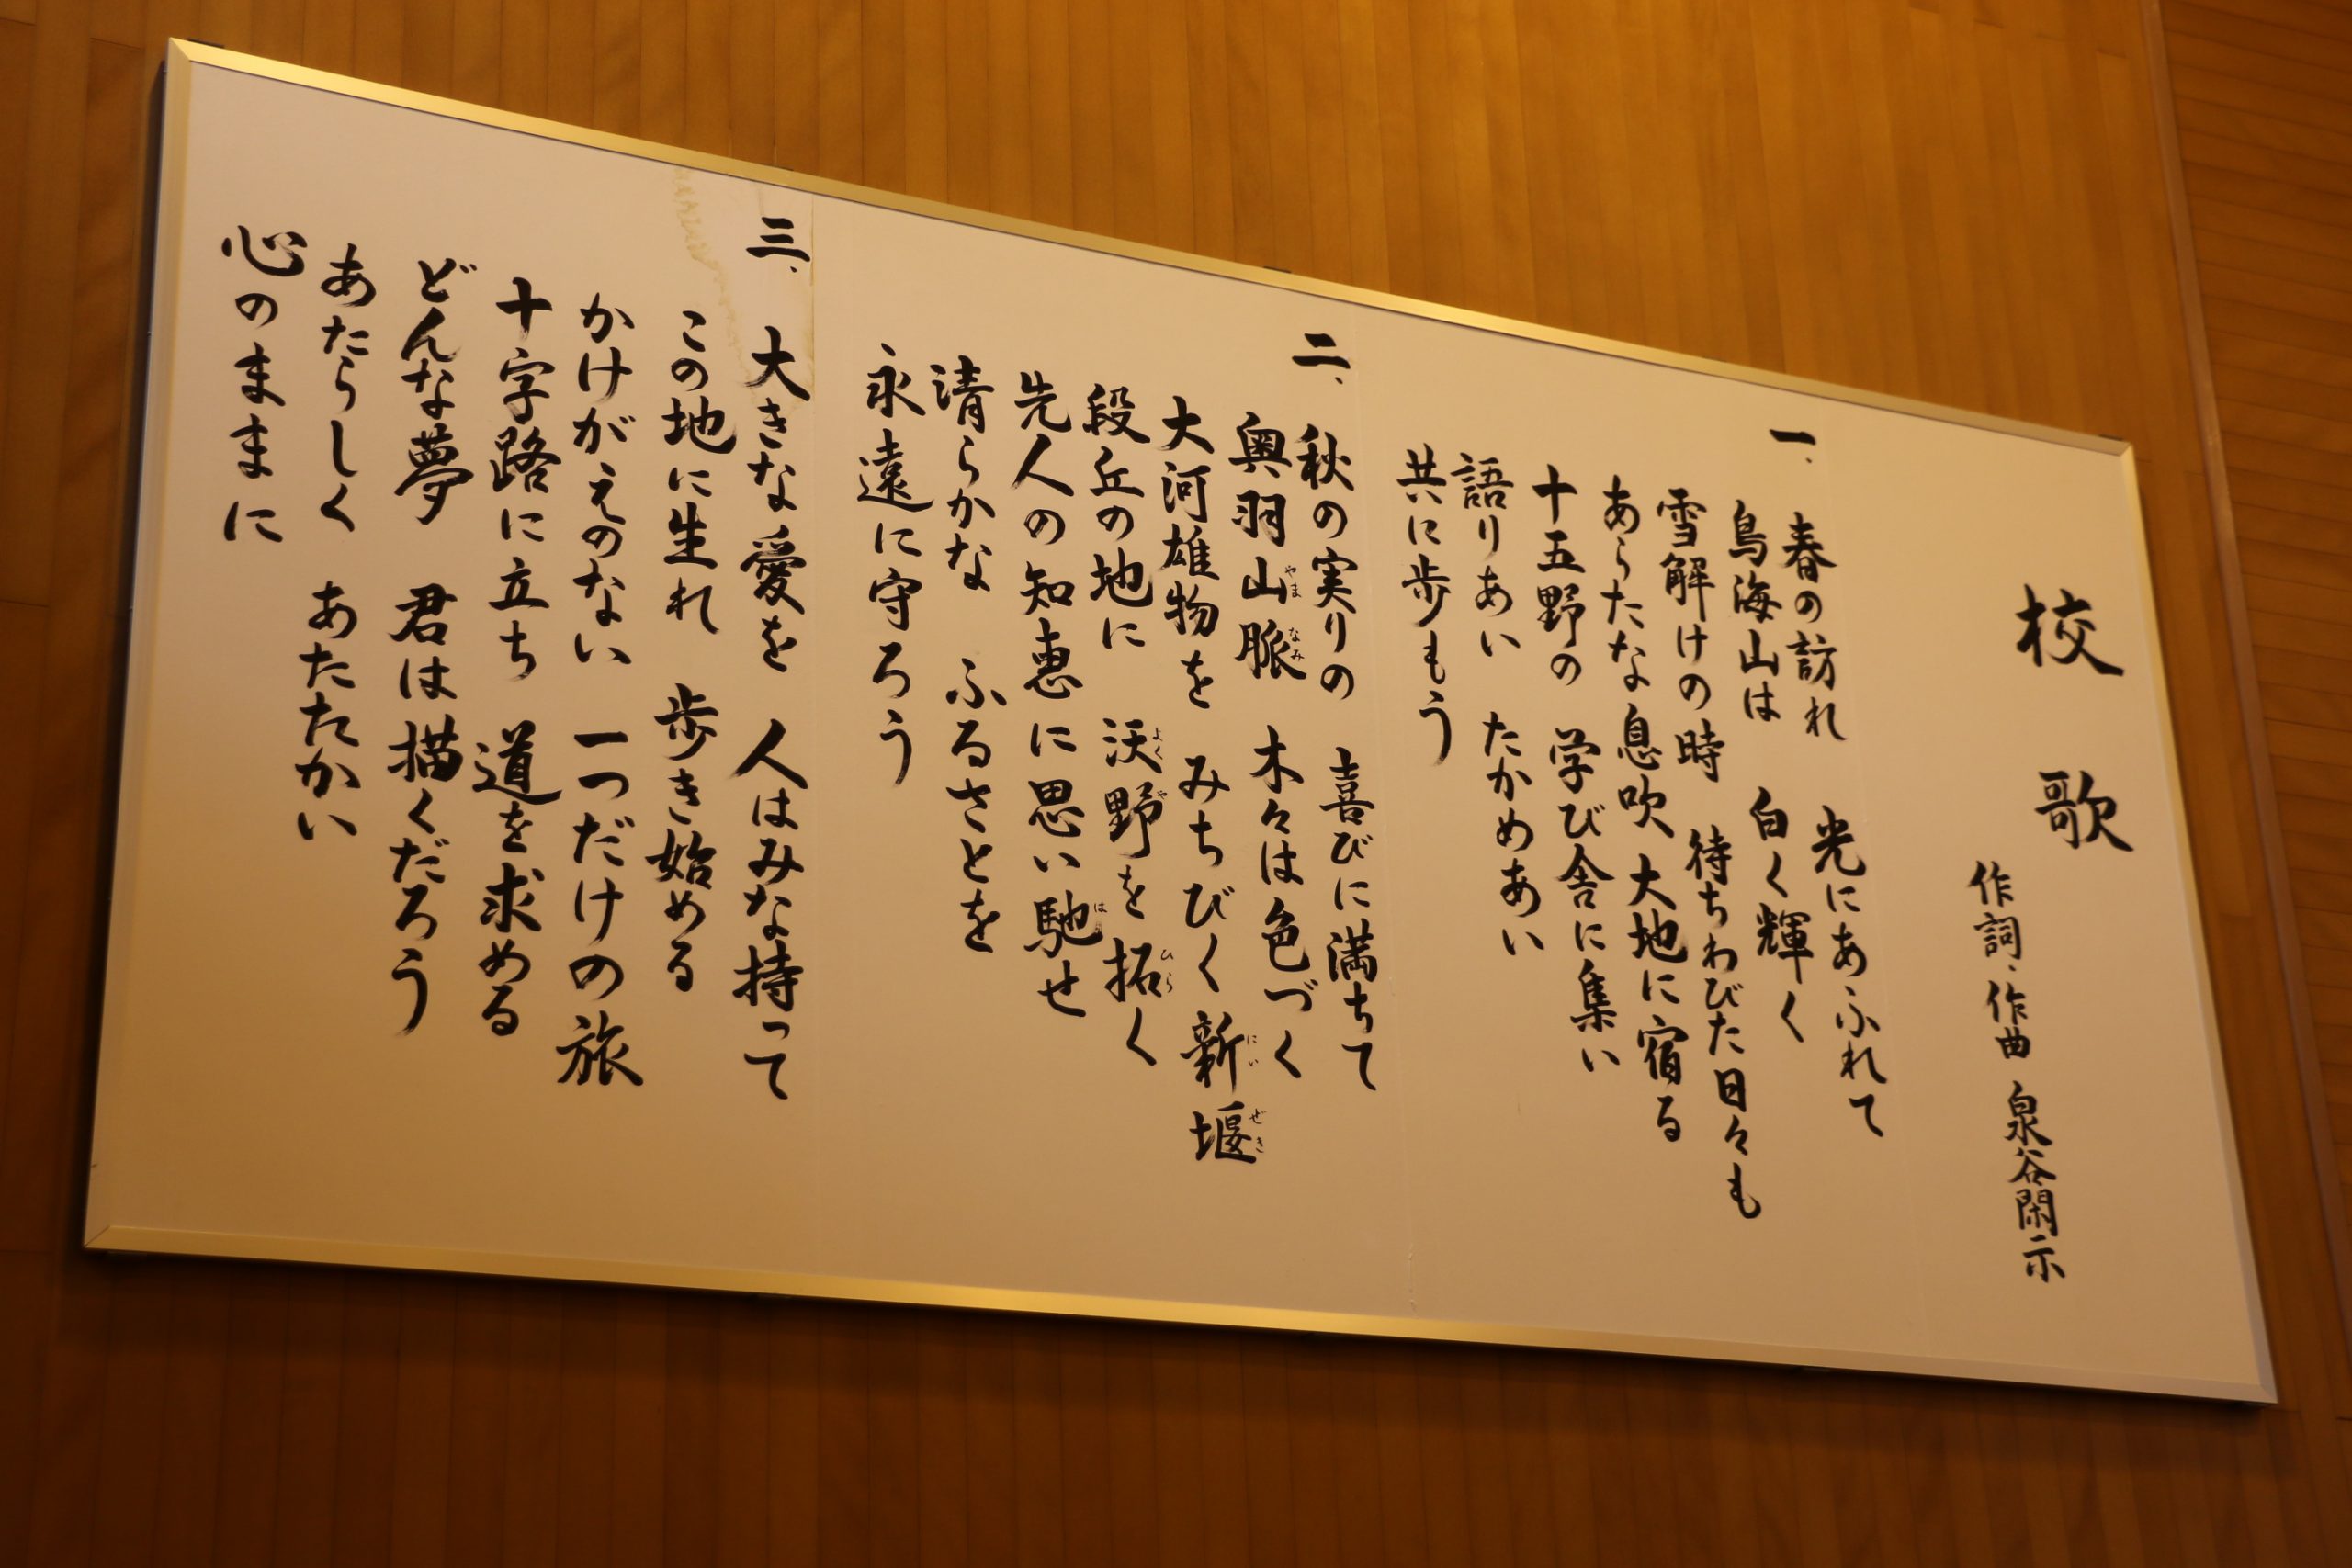 校歌
作詞、作曲 泉谷閑示
一、春の訪れ 光にあふれて
鳥海山は 白く輝く
雪解けの時 待ちわびた日々も
あらたな息吹 大地に宿る
十五野の 学び舎に集い
語りあい たかめあい
共に歩もう
二、秋の実りの 喜びに満ちて
奥羽山脈 木々は色づく
大河雄物を みちびく新堰
段丘の地に 沃野を拓く
先人の知恵に思い馳せ
清らかな ふるさとを
永遠に守ろう
三、大きな愛を 人はみな持って
この地に生れ 歩き始める
かけがえのない 一つだけの旅
十字路に立ち 道を求める
どんな夢 君は描くだろう
あたらしく あたたかい
心のままに